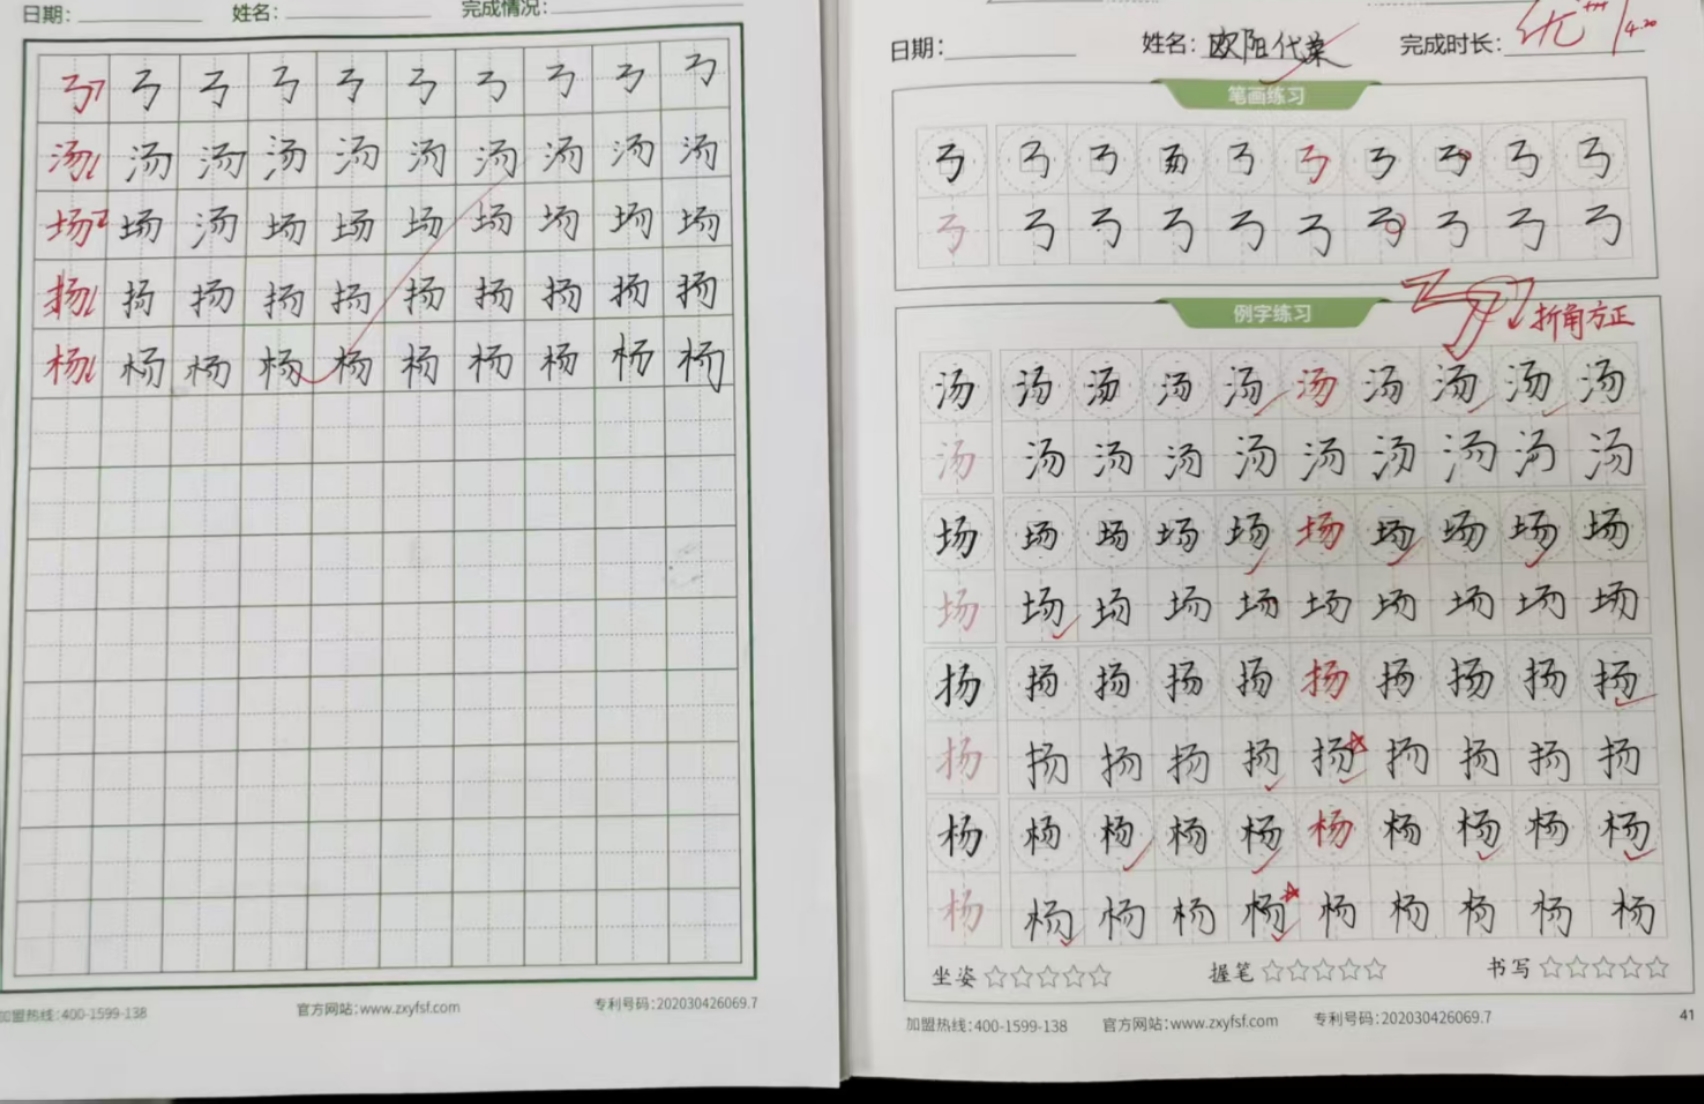 日期： 姓名： 完成情况：
㇡ ㇡ ㇡ ㇡ ㇡ ㇡ ㇡ ㇡ ㇡ ㇡
汤 汤 汤 汤 汤 汤 汤 汤 汤 汤
场 场 汤 场 场 场 场 场 场 场
扬 扬 扬 扬 扬 扬 扬 扬 扬 扬
杨 杨 杨 杨 杨 杨 杨 杨 杨 杨
加盟热线：400-1599-138 官方网站：www.zxyfsf.com 专利号码：202030426069.7
日期： 姓名：欧阳代桑 完成时长： 优 4.20
笔画练习
㇡ ㇡ ㇡ ㇡ ㇡ ㇡ ㇡ ㇡ ㇡ ㇡
㇡ ㇡ ㇡ ㇡ ㇡ ㇡ ㇡ ㇡ ㇡ ㇡
例字练习
㇡ 折角方正
汤 汤 汤 汤 汤 汤 汤 汤 汤 汤
汤 汤 汤 汤 汤 汤 汤 汤 汤 汤
场 场 场 场 场 场 场 场 场 场
场 场 场 场 场 场 场 场 场 场
扬 扬 扬 扬 扬 扬 扬 扬 扬 扬
扬 扬 扬 扬 扬 扬 扬 扬 扬 扬
杨 杨 杨 杨 杨 杨 杨 杨 杨 杨
杨 杨 杨 杨 杨 杨 杨 杨 杨 杨
坐姿☆☆☆☆☆ 握笔☆☆☆☆☆ 书写☆☆☆☆☆
加盟热线：400-1599-138 官方网站：www.zxyfsf.com 专利号码：202030426069.7 41